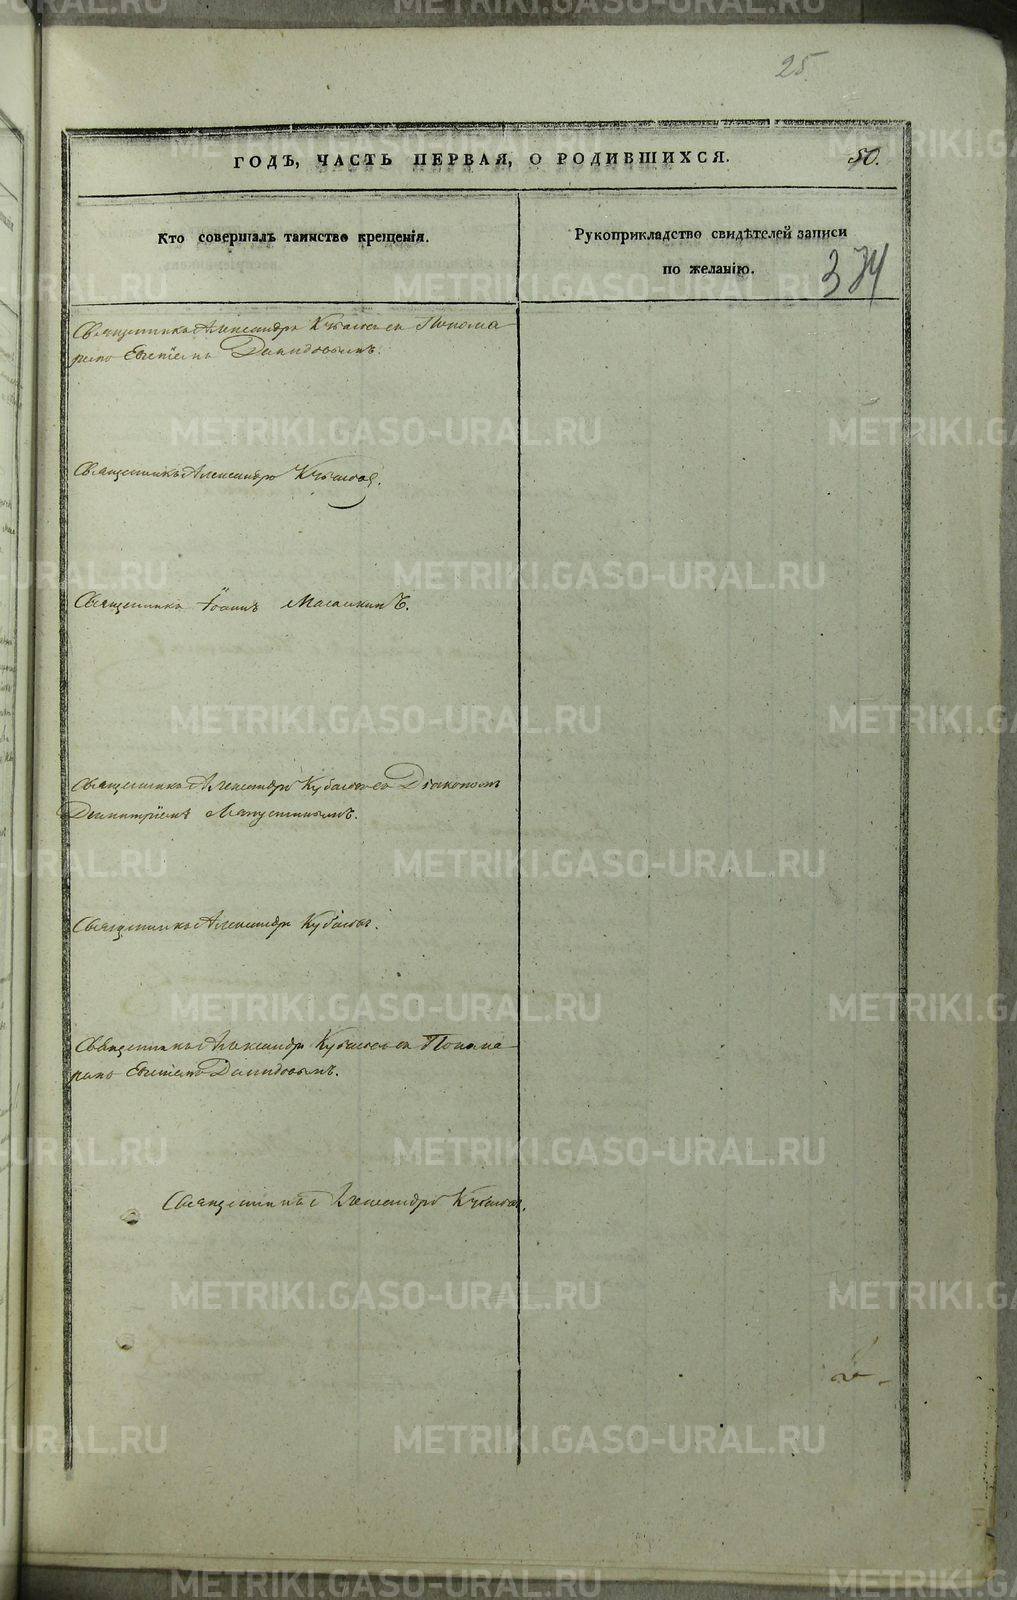 25
ГОДЪ, ЧАСТЬ ПЕРВАЯ, О РОДИВШИХСЯ.
50.
Кто совершалъ таинство крещенія.
Рукоприкладство свидѣтелей записи
по желанію.
374
Священникъ Александръ Кубасовъ съ Понома
ремъ Давидовымъ.
Священникъ Александръ Кубасовъ.
Священникъ Іоаннъ
Священникъ Александръ Кубасовъ съ Діакономъ
Димитріемъ
Священникъ Александръ Кубасовъ.
Священникъ Александръ Кубасовъ съ Понома
ремъ Давидовымъ.
Священникъ Александръ Кубасовъ.
METRIKI.GASO-URAL.RU